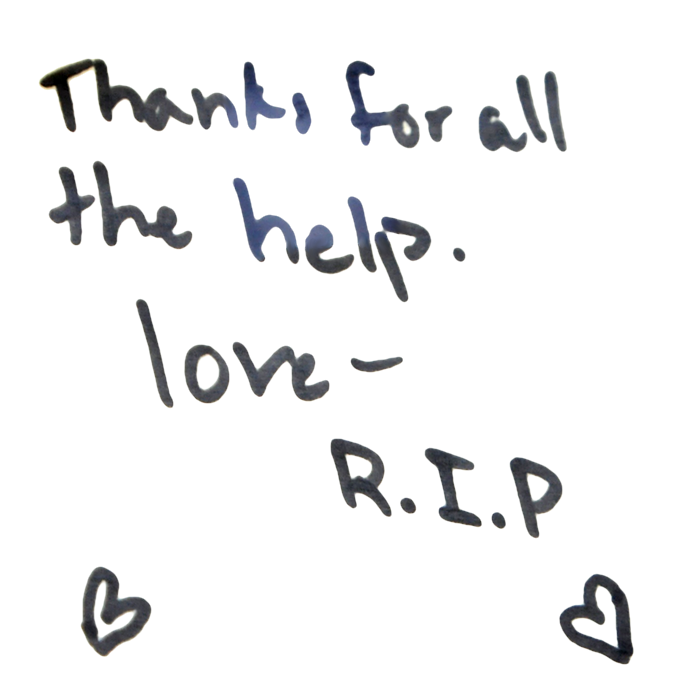 Thanks for all
the help.
love–
R.I.P